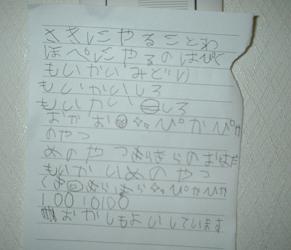 さきにやることわ
ほぺにやるのはぴく
もいかいみどり
もいかいしろ
もいかいしろ
おかお ぴかぴか
のやつ
めのやつ きらのおはだ
もいかいめのやつ
ぴかぴか
1001010
おかしもよいしています